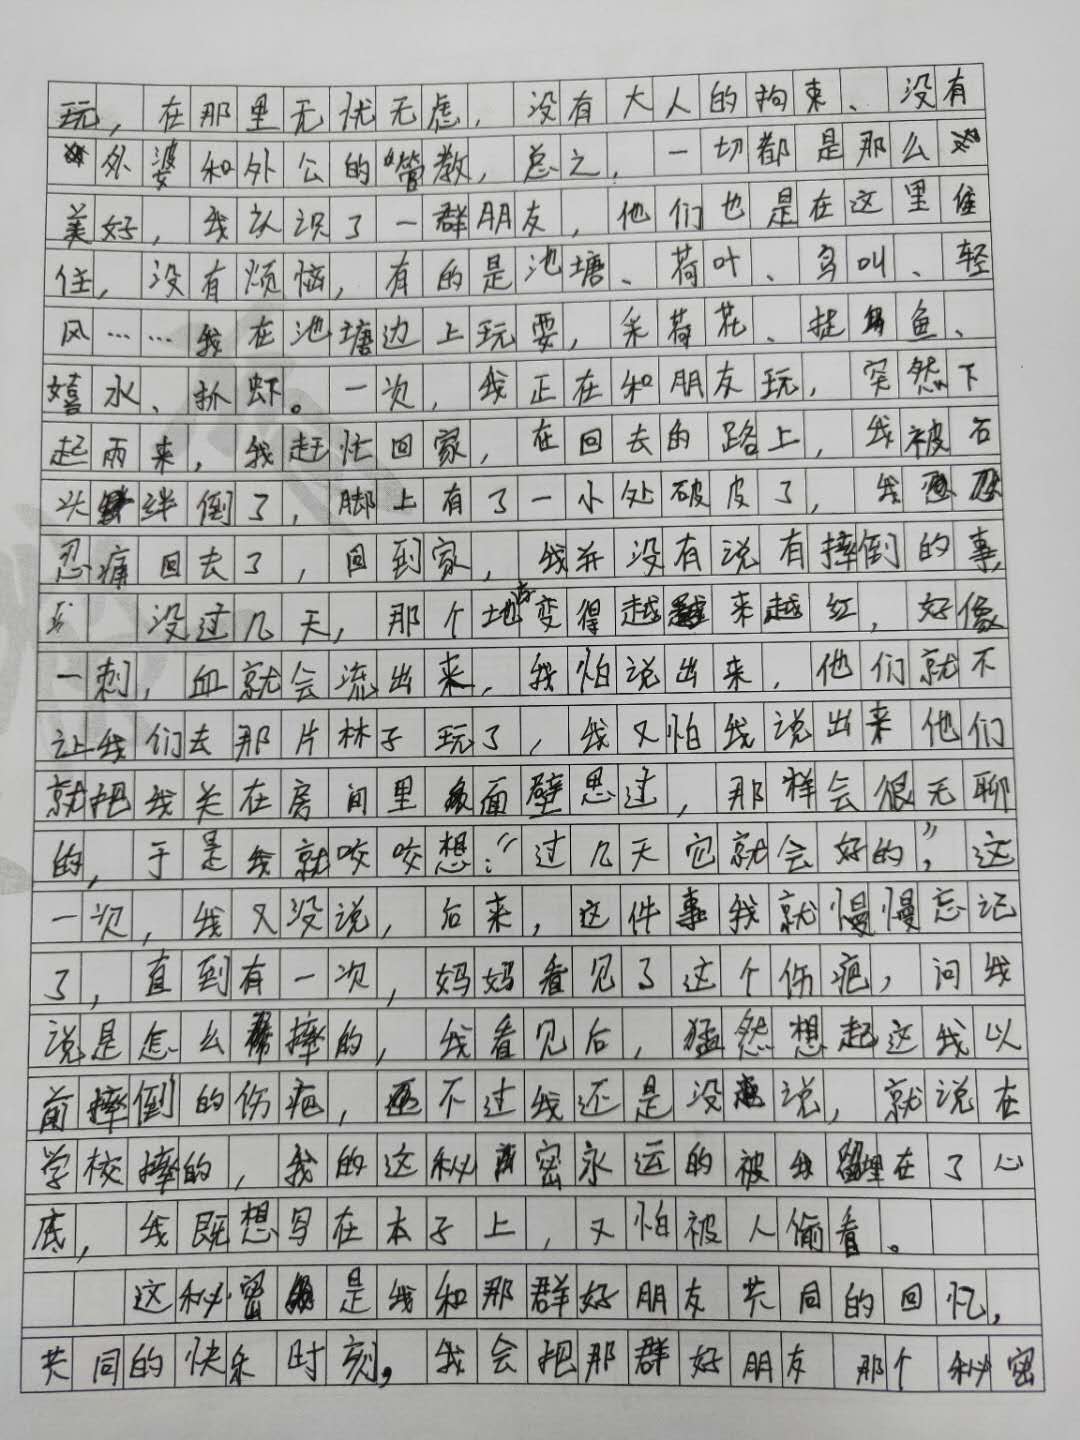 玩，在那里无忧无虑，没有大人的拘束、没有
外婆和外公的“管教，总之，一切都是那么
美好，我认识了一群朋友，他们也是在这里住
住，没有烦恼，有的是池塘、荷叶、鸟叫、轻
风……我在池塘边上玩耍，采荷花、捉鱼、
嬉水、抓虾。一次，我正在和朋友玩，突然下
起雨来，我赶忙回家，在回去的路上，我被石
头绊倒了，脚上有了一小处破皮了，我忍
忍痛回去了，回到家，我并没有说有摔倒的事，
没过几天，那个地方变得越来越红，好像
一刺，血就会流出来，我怕说出来，他们就不
让我们去那片林子玩了，我又怕我说出来他们
就把我关在房间里面壁思过，那样会很无聊
的，于是我就咬咬想：“过几天它就会好的”，这
一次，我又没说，后来，这件事我就慢慢忘记
了，直到有一次，妈妈看见了这个伤疤，问我
说是怎么摔的，我看见后，猛然想起这我以
前摔倒的伤疤，不过我还是没说，就说在
学校摔的，我的这秘密永远的被我埋在了心
底，我既想写在本子上，又怕被人偷看。
这秘密是我和那群好朋友共同的回忆，
共同的快乐时刻，我会把那群好朋友那个秘密